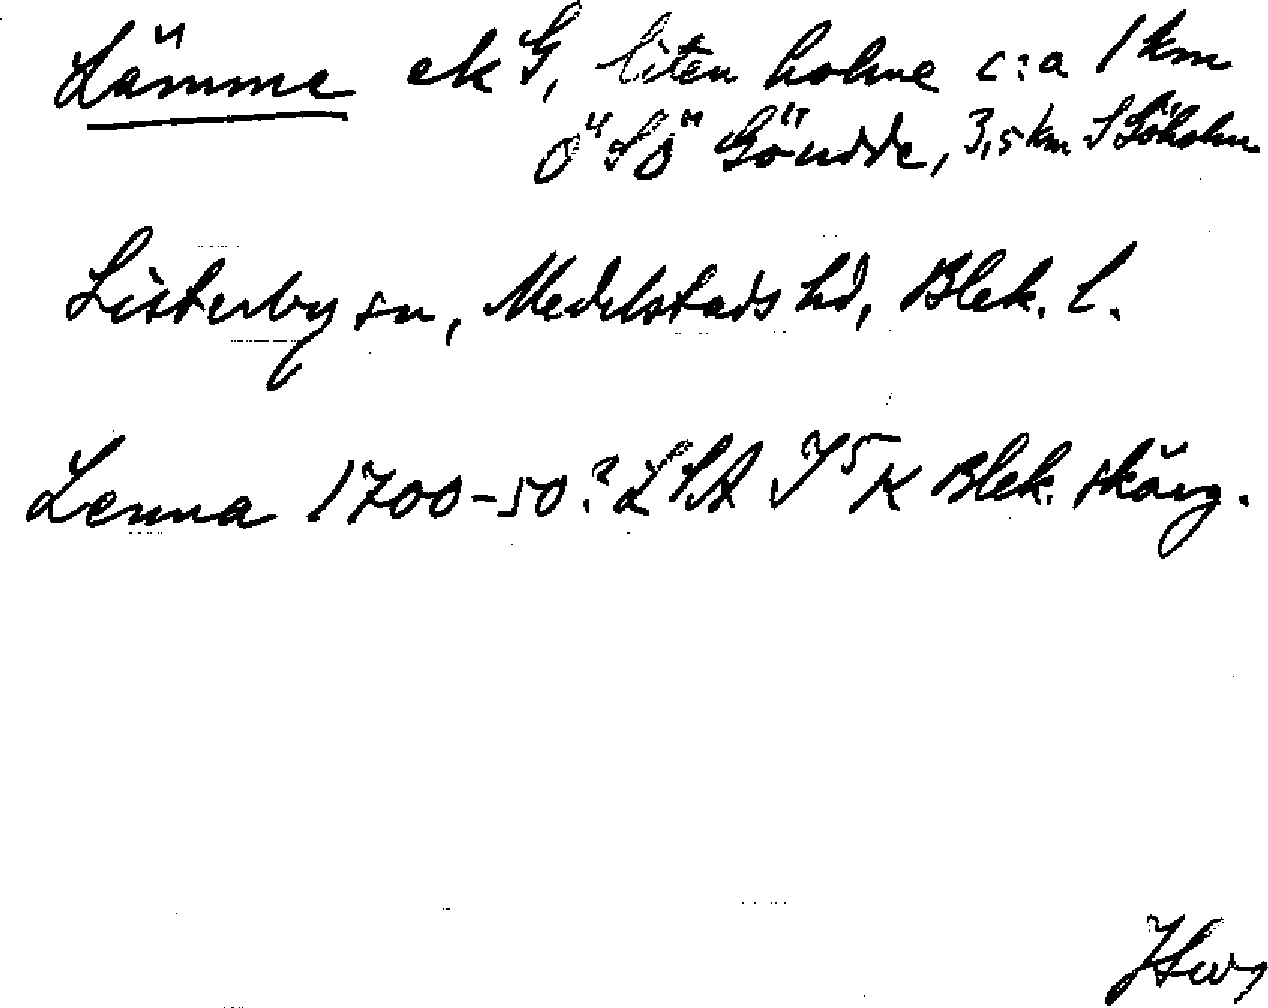 Lämme ekG, liten holme c:a 1 km
Ö SÖ Göudde, 3,5 km S Göholm
Listerby sn, Medelstads hd, Blek. l.
Lenna 1700-50? LSA Blek. skärg.